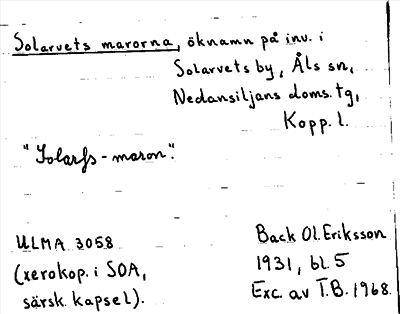 Solarvets marorna, öknamn på inv. i
Solarvets by, Åls sn,
Nedansiljans doms. tg,
Kopp. l.
"Solarfs-maron".
ULMA 3058
(xerokop. i SOA,
särsk. kapsel).
Back Ol. Eriksson
1931, bl. 5
Exc. av T.B. 1968.